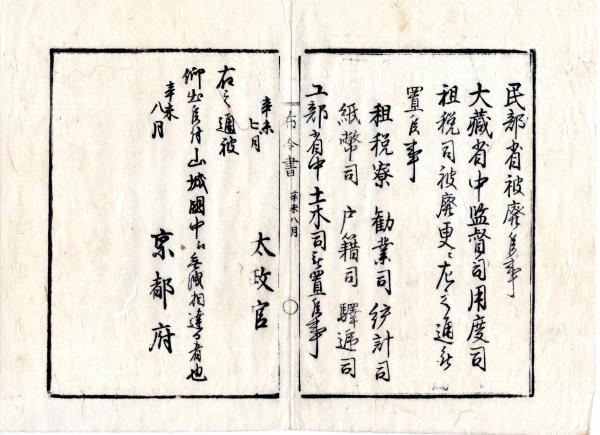 民部省被廢候事
大藏省中監督司用度司
租税司被廢更ニ左之通被
置候事
租税寮 勧業司 統計司
紙幣司 戸籍司 驛逓司
工部省中土木司被置候事
布令書 辛未八月
辛未七月 太政官
右之通被
仰出候付山城國中江無洩相達る者也
辛未八月 京都府